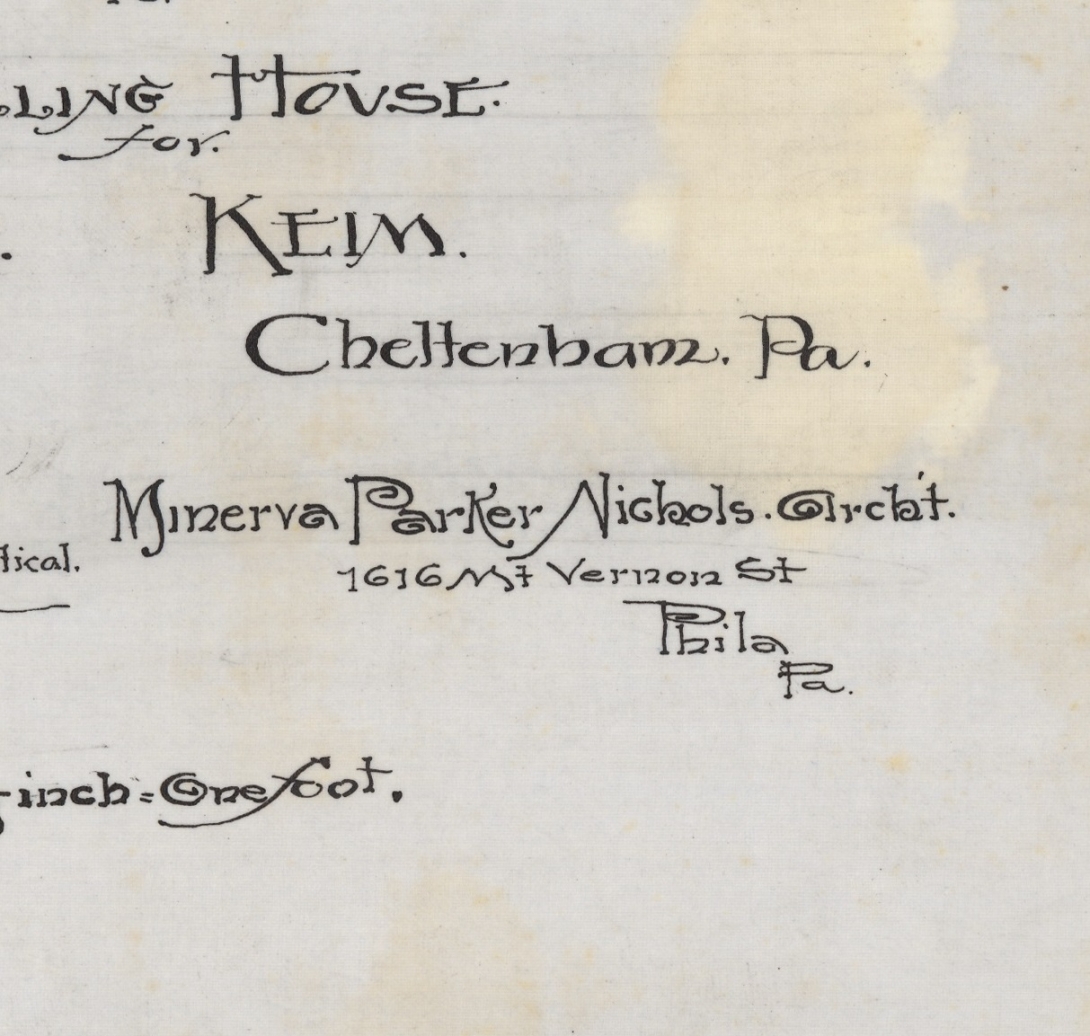 LLING HOVSE.
for.
. KEIM.
Cheltenham. Pa.
Minerva Parker Nichols. Archt.
tical.
1616 Mt Vernon St
Phila
Pa.
inch = One foot.